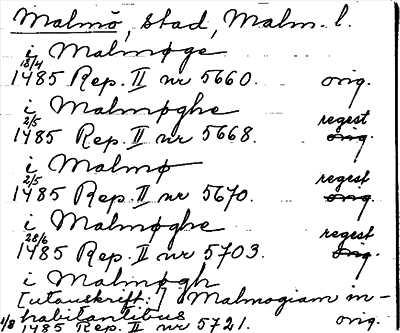 Malmö, stad, Malm. l.
i Malmøge
18/4
1485 Rep. II nr 5660. orig.
i Malmøghe
2/5 regest
1485 Rep. II nr 5668. orig.
i Malmø
2/5 regest
1485 Rep. II nr 5670. orig.
i Malmøghe
28/6 regest
1485 Rep. II nr 5703. orig.
i Malmøgh
[utanskrift:] Malmogiam in-
habitantibus
1/8 1485 Rep. II nr 5721. orig.